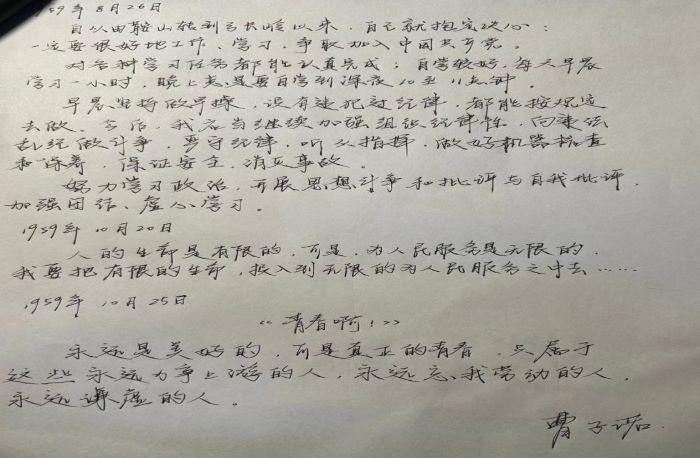 1959年 8月26日
自从由鞍山转到弓长岭以来，自己就抱定决心：
一定要很好地工作、学习，争取加入中国共产党。
对各种学习任务都能认真完成；自学较好，每天早晨
学习一小时，晚上总是要自学到深夜10至11点钟。
早晨坚持做早操，没有违犯过纪律，都能按规定
去做。今后，我应当继续加强组织纪律性，向违法
乱纪做斗争，严守纪律，听从指挥，做好机器检查
和保养，保证安全，消灭事故。
努力学习政治，开展思想斗争和批评与自我批评，
加强团结、虚心学习。
1959年 10月20日
人的生命是有限的，可是，为人民服务是无限的，
我要把有限的生命，投入到无限的为人民服务之中去……
1959年 10月25日
《青春啊！》
永远是美好的，可是真正的青春，只属于
这些永远力争上游的人，永远忘我劳动的人，
永远谦虚的人。
曹子诺